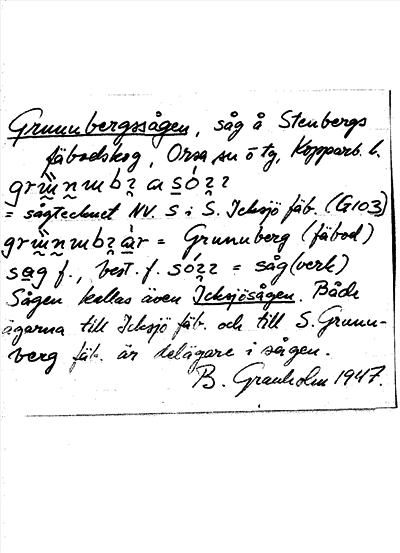 Grunnbergssågen, såg å Stenbergs
fäbodskog, Orsa sn o tg, Kopparb. l.
= sågtecknet NV. S i S. Icksjö fäb. (G103)
= Grunnberg (fäbod)
sag f., best. f. = såg(verk)
Sågen kallas även Icksjösågen. Både
ägarna till Icksjö fäb. och till S. Grunn-
berg fäb. är delägare i sågen.
B. Granholm 1947.